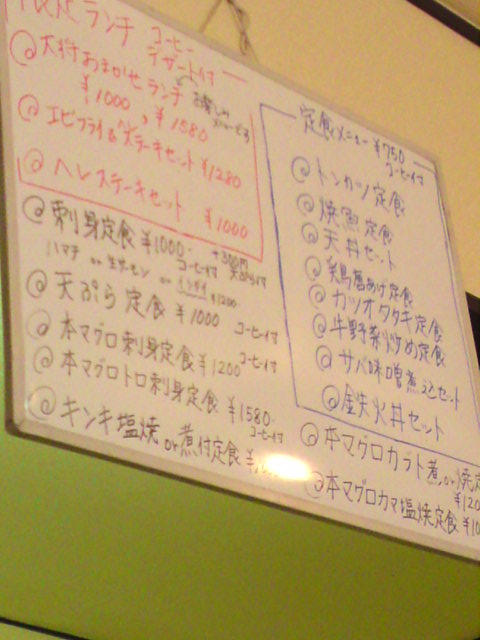 ランチ コーヒー
デザート付
@大狩おまかせランチ お楽しみ
¥1000, ¥1580
@エビフライ&ステーキセット ¥1280
@ヘレステーキセット ¥1000
@刺身定食 ¥1000 +300円
コーヒー付 天ぷら付
ハマチ or 生サーモン or ¥1200
@天ぷら定食 ¥1000 コーヒー付
@本マグロ刺身定食 ¥1200 コーヒー付
@本マグロトロ刺身定食 ¥1580
コーヒー付
@キンキ塩焼 or 煮付定食
定食メニュー ¥750
コーヒー付
@トンカツ定食
@焼魚定食
@天丼セット
@鶏唐あげ定食
@カツオタタキ定食
@牛野菜炒め定食
@サバ味噌煮込セット
@鉄火丼セット
@本マグロカブト煮, or 焼定
¥120
@本マグロカマ塩焼定食 ¥10